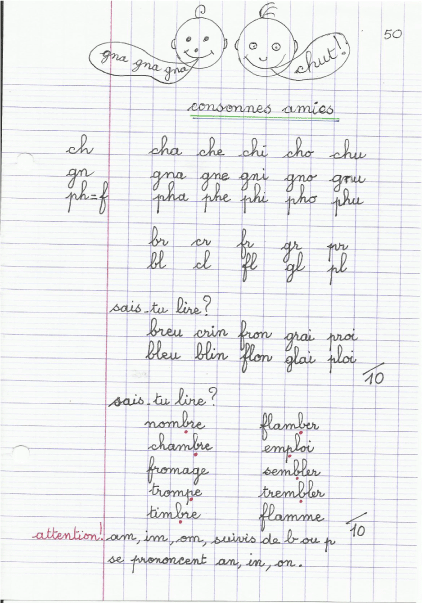 50
gna gna gna
chut!
consonnes amies
ch cha che chi cho chu
gn gna gne gni gno gnu
ph=f pha phe phi pho phu
br cr fr gr pr
bl cl fl gl pl
sais-tu lire?
breu crin fron grai proi
bleu blin flon glai ploi
/10
sais-tu lire?
nombre flamber
chambre emploi
fromage sembler
trompe trembler
timbre flamme
/10
attention! am, im, om, suivis de b ou p
se prononcent an, in, on.